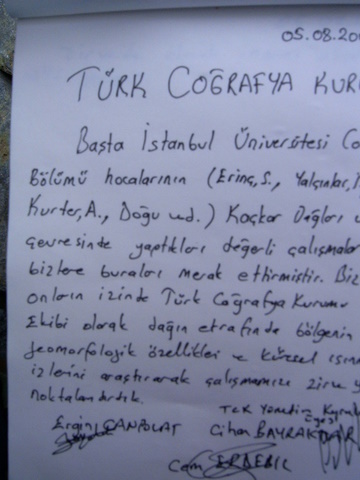 05.08.20
TÜRK COĞRAFYA KURU
Başta İstanbul Üniversitesi Co
Bölümü hocalarının (Erinç, S., Yalçınlar,
Kurter, A., Doğu vd.) Kaçkar Dağları v
çevresinde yaptıkları değerli çalışmalar
bizlere buraları merak ettirmiştir. Biz
onların izinde Türk Coğrafya Kurumu
Ekibi olarak dağın etrafında bölgenin
jeomorfolojik özellikleri ve küresel ısın
izlerini araştırarak çalışmamızı zirve
noktalandırdık.
TCK Yönetim Kurulu
Üyesi
Ergin CANPOLAT Cihan BAYRAKDAR
Cem ERDEBİL